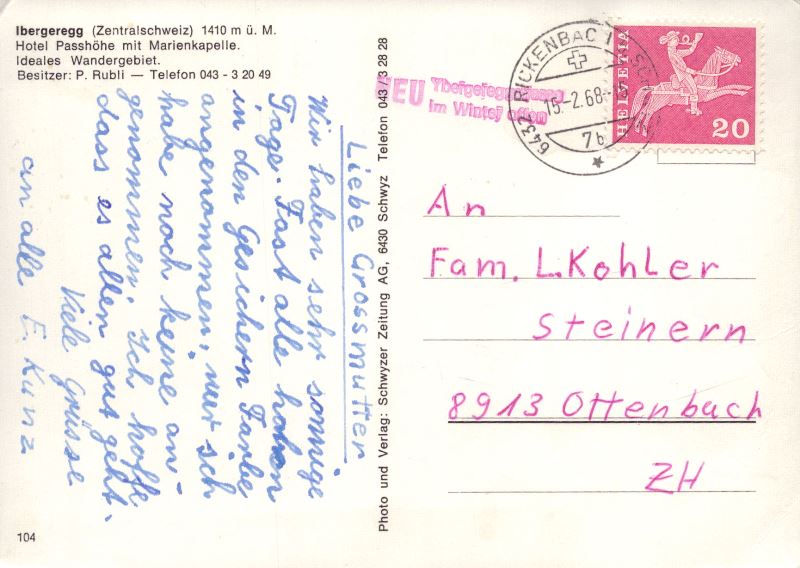 Ibergeregg (Zentralschweiz) 1410 m ü. M.
Hotel Passhöhe mit Marienkapelle.
Ideales Wandergebiet.
Besitzer: P. Rubli — Telefon 043 - 3 20 49
Liebe Grossmutter
Wir haben sehr sonnige
Tage. Fast alle haben
in den Gesichern Farbe
angenommen, nur ich
habe noch keine an-
genommen. Ich hoffe
dass es allen gut geht.
Viele Grüsse
an alle E. Kunz
104
Photo und Verlag: Schwyzer Zeitung AG, 6430 Schwyz Telefon 043 / 3 28 28
NEU Ybergereggstrung
im Winter offen
6432 RICKENBACH
15.-2.68
7b
HELVETIA
20
An
Fam. L. Kohler
Steinern
8913 Ottenbach
ZH